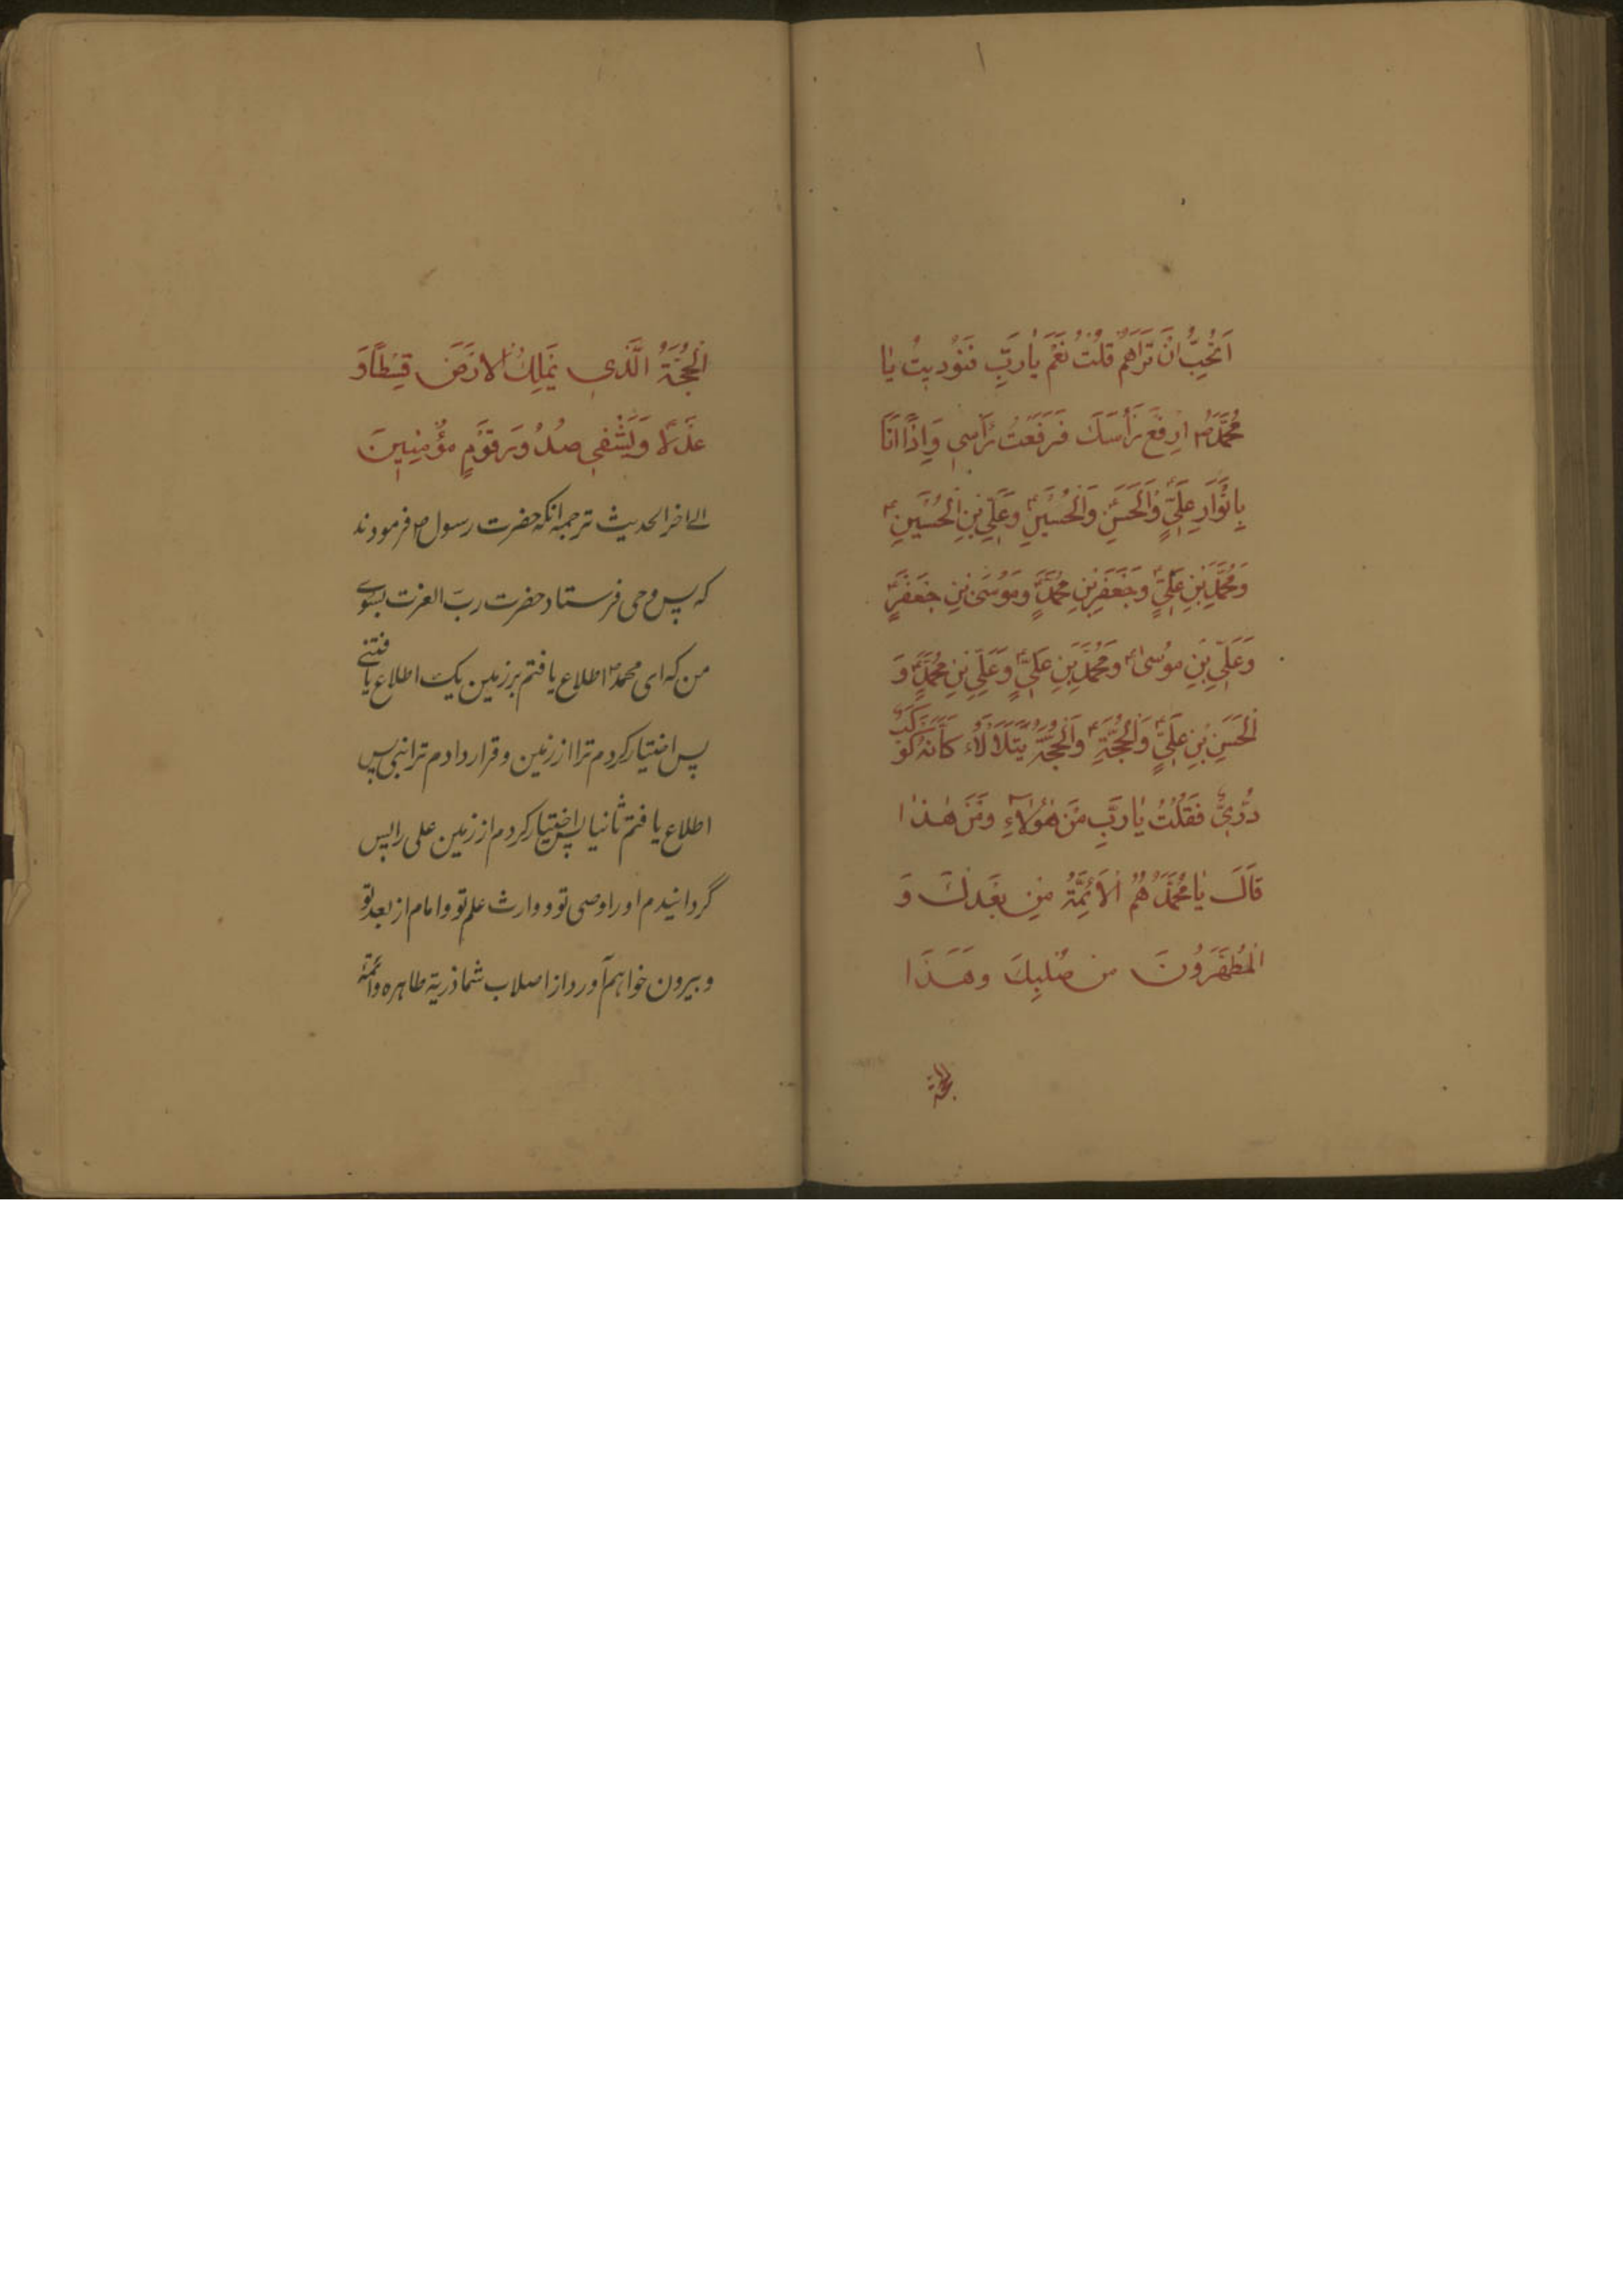 اَتُحِبُّ اَنْ تَراهُمْ قُلْتُ نَعَمْ يا رَبِّ فَنُودِيتُ يا
مُحَمَّدُ ص ارْفَعْ رَأْسَكَ فَرَفَعْتُ رَأْسِي وَاِذًا اَنَا
بِاَنْوارِ عَلِيٍّ وَالْحَسَنِ وَالْحُسَيْنِ وَعَلِيِّ بْنِ الْحُسَيْنِ
وَمُحَمَّدِ بْنِ عَلِيٍّ وَجَعْفَرِ بْنِ مُحَمَّدٍ وَمُوسَى بْنِ جَعْفَرٍ
وَعَلِيِّ بْنِ مُوسىٰ وَمُحَمَّدِ بْنِ عَلِيٍّ وَعَلِيِّ بْنِ مُحَمَّدٍ وَ
الْحَسَنِ بْنِ عَلِيٍّ وَالْحُجَّةِ وَالْحُجَّةُ يَتَلَأْلَاُ كَاَنَّهُ كَوْكَبٌ
دُرِّيٌّ فَقُلْتُ يا رَبِّ مَنْ هٰؤُلاءِ وَمَنْ هٰذا
قالَ يا مُحَمَّدُ هُمُ الْاَئِمَّةُ مِنْ بَعْدِكَ وَ
الْمُطَهَّرُونَ مِنْ صُلْبِكَ وَهَذَا
الحجة
الْحُجَّةُ الَّذِي يَمْلِكُ الْاَرْضَ قِسْطًا وَ
عَدْلًا وَيَشْفِي صُدُورَ قَوْمٍ مُؤْمِنِينَ
الے اخر الحدیث ترجمه انکه حضرت رسول ص فرمودند
که پس وحی فرستاد حضرت ربّ العزت بسوے
من که ای محمد ص اطلاع یافتم بر زمین یک اطلاع یافتنے
پس اختیار کردم ترا از زمین و قرار دادم ترا نبی پس
اطلاع یافتم ثانیا پس اختیار کردم از زمین علی را پس
گردانیدم او را وصی تو و وارث علم تو و امام از بعد تو
و بیرون خواهم آورد از اصلاب شما ذریة طاهره و ائمه